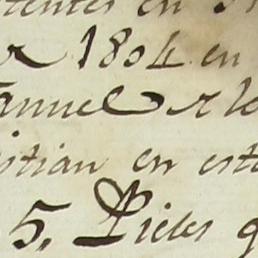 tentes en
1804 en
anuel
stian en est
5. Pieles q